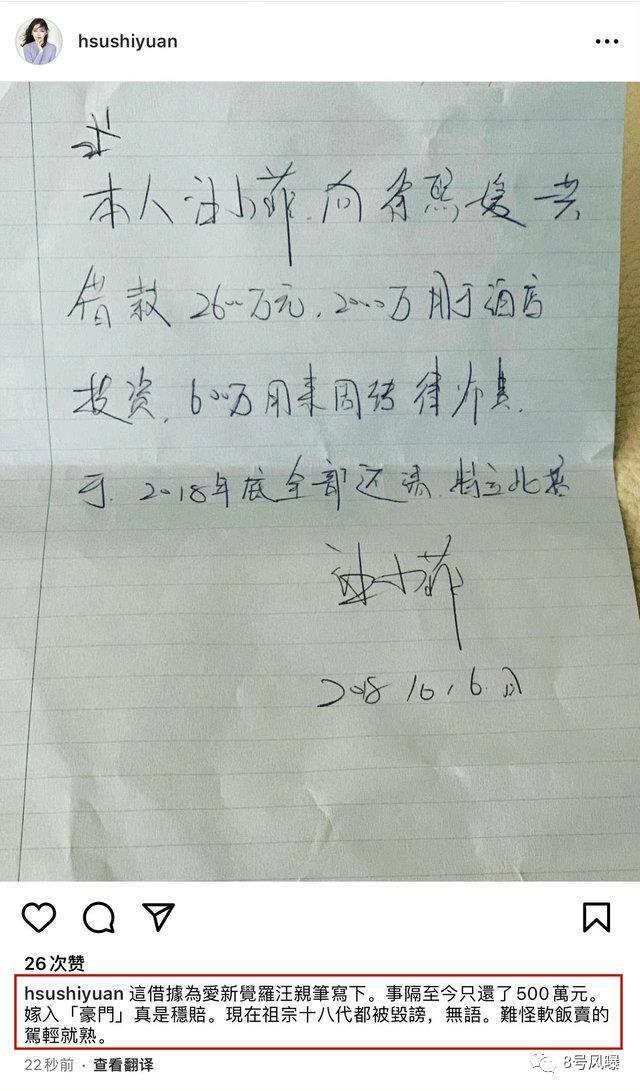 hsushiyuan
本人汪小菲.向徐熙媛共
借款2600万元,2000万用于酒店
投资,600万用来周转律师费.
于.2018年底全部还清.特立此据
汪小菲
2018 10,6.
26次赞
hsushiyuan 這借據為愛新覺羅汪親筆寫下。事隔至今只還了500萬元。
嫁入「豪門」真是穩賠。現在祖宗十八代都被毀謗，無語。難怪軟飯賣的
駕輕就熟。
22秒前 · 查看翻译
8号风曝